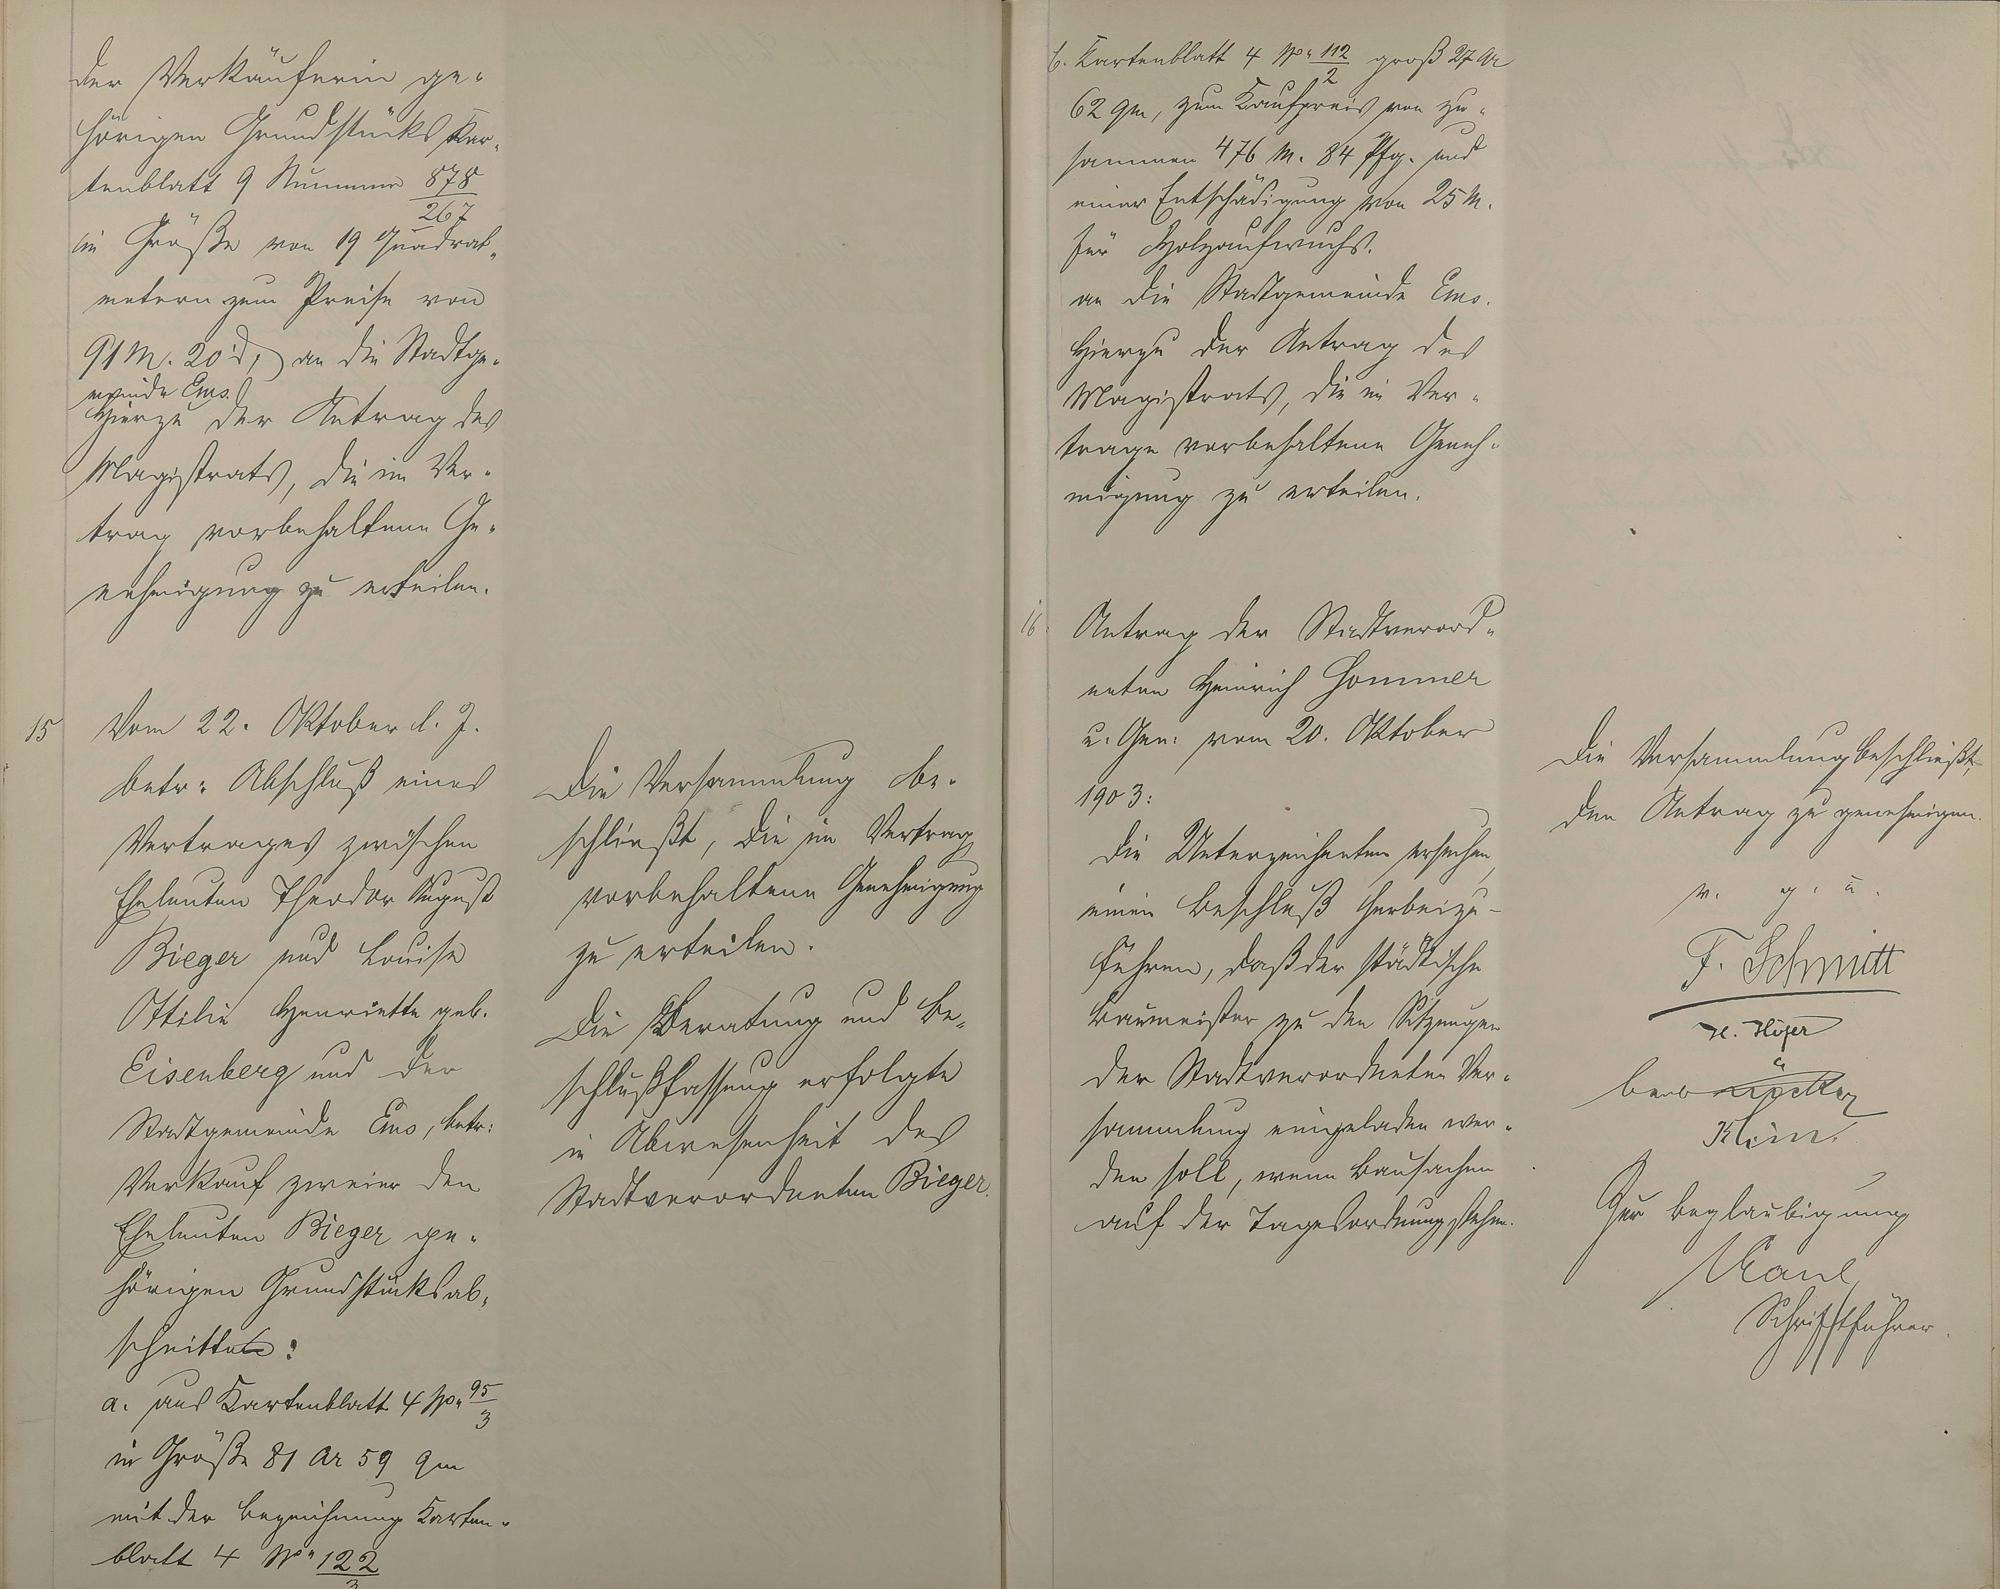 der Verkäuferin ge-
hörigen Grundstücks Kar-
tenblatt 9 Nummer 878/267
in Größe von 19 Quadrat-
metern zum Preise von
91 M. 20 d, an die Stadtge-
meinde Ems.
Hierzu der Antrag des
Magistrats, die im Ver-
trag vorbehaltene Ge-
nehmigung zu erteilen.
15 Vom 22. Oktober l. J.
betr: Abschluß eines
Vertrages zwischen
Eheleuten Theodor August
Bieger und Louise
Ottilie Henriette geb.
Eisenberg und der
Stadtgemeinde Ems, betr:
Verkauf zweier den
Eheleuten Bieger ge-
hörigen Grundstücksab-
schnitte:
a. aus Kartenblatt 4 No 95/3
in Größe 81 Ar 59 qm
mit der Bezeichnung Karten-
blatt 4 No 122/3
Die Versammlung be-
schließt, die im Vertrag
vorbehaltene Genehmigung
zu erteilen.
Die Beratung und Be-
schlußfassung erfolgte
in Abwesenheit des
Stadtverordneten Bieger.
b. Kartenblatt 4 No 112/2 groß 27 Ar
62 qm, zum Kaufpreis von zu-
sammen 476 M. 84 Pfg. und
einer Entschädigung von 25 M.
für Holzaufwuchs.
an die Stadtgemeinde Ems.
Hierzu der Antrag des
Magistrats, die im Ver-
trage vorbehaltene Geneh-
migung zu erteilen.
16. Antrag der Stadtverord-
neten Heinrich Hommer
u. Gen: vom 20. Oktober
1903:
Die Unterzeichneten ersuchen,
einen Beschluß herbeizu-
führen, daß der städtische
Baumeister zu den Sitzungen
der Stadtverordneten Ver-
sammlung eingeladen wer-
den soll, wenn Bausachen
auf der Tagesordnung stehen.
Die Versammlung beschließt,
den Antrag zu genehmigen.
v. g. u.
F. Schmitt
Zur Beglaubigung
Schriftführer.